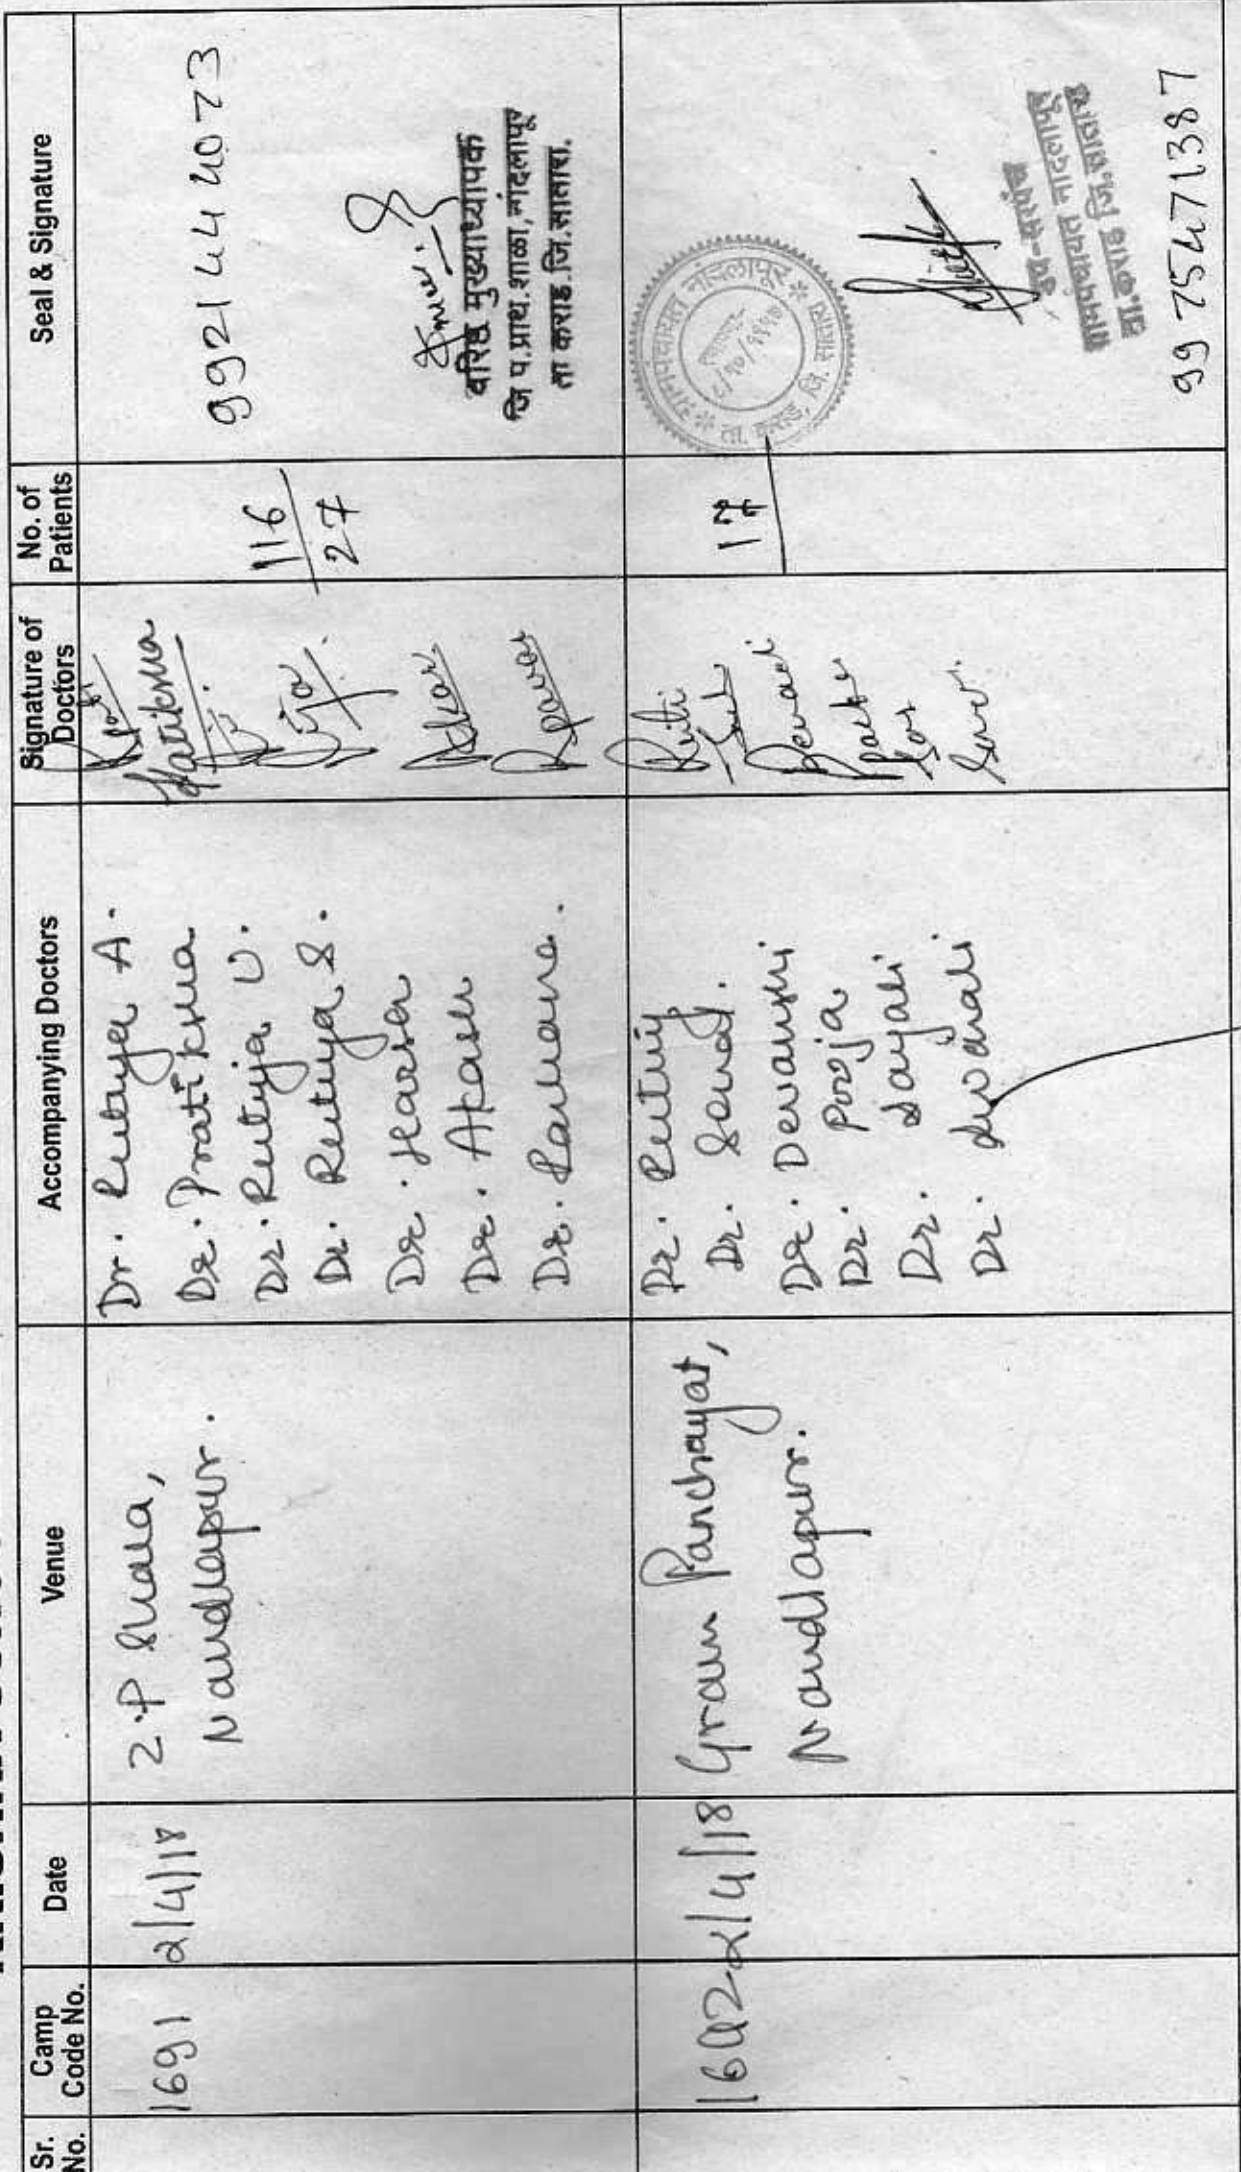 Sr. No.
Camp Code No.
Date
Venue
Accompanying Doctors
Signature of Doctors
No. of Patients
Seal & Signature
1691
2/4/18
Z.P Shala,
Nandlapur.
Dr. Rutuja A.
Dr. Pratiksha
Dr. Rutuja U.
Dr. Rutuja S.
Dr. Harsh
Dr. Akash
Dr.
Pratiksha
Rpawar
116
27
9921444073
वरिष्ठ मुख्याध्यापक
जि प.प्राथ.शाळा,नांदलापूर
ता कराड.जि.सातारा.
1692
2/4/18
Gram Panchayat,
Nandlapur.
Dr. Rutuj
Dr.
Dr. Devanshi
Dr. Pooja
Dr. Sayali
Dr.
17
ग्रामपंचायत नांदलापूर
ता. कराड, जि. सातारा
उप-सरपंच
ग्रामपंचायत नांदलापूर
ता.कराड जि.सातारा
9975471387